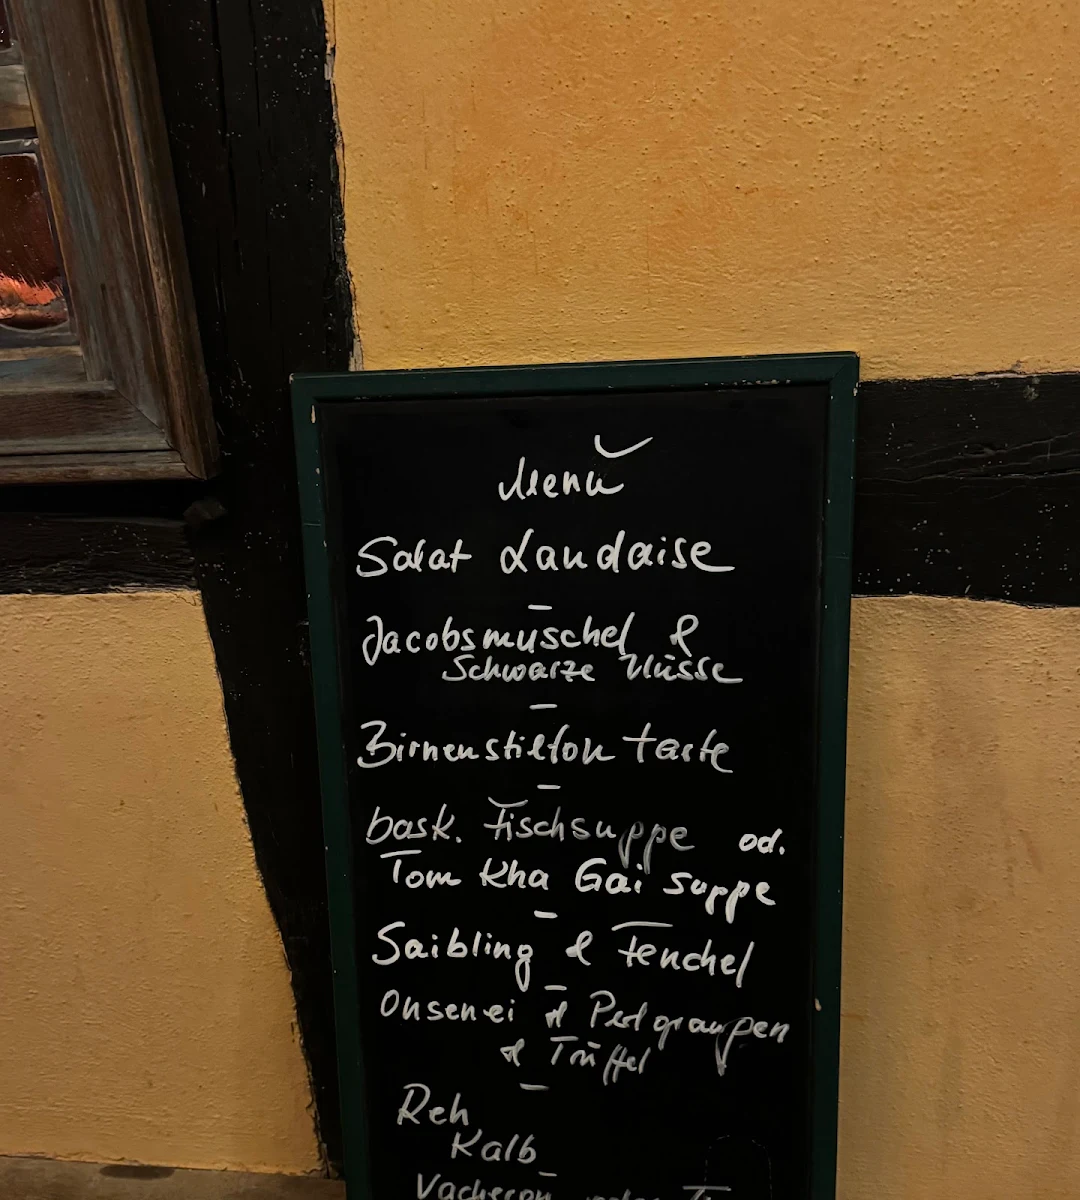 Menü
Salat Landaise
–
Jacobsmuschel &
Schwarze Nüsse
–
Birnenstilton tarte
–
bask. Fischsuppe od.
Tom Kha Gai suppe
–
Saibling & Fenchel
–
Onsenei & Perlgraupen
& Trüffel
–
Reh
Kalb
–
Vacheron oder